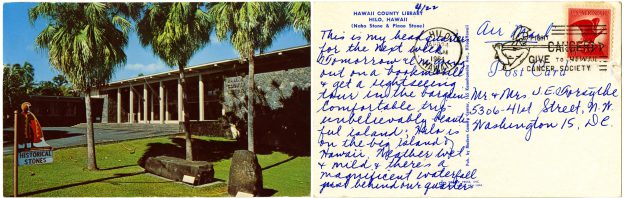 HISTORICAL
STONES
HAWAII COUNTY LIBRARY
HILO, HAWAII
(Naha Stone & Pinao Stone)
4/22
This is my headquarters
for the next week.
Tomorrow I
out on a bookmobile
& get a sightseeing
tour in the bargain.
Comfortable trip
unbelievably beauti
ful island; Hilo is
on the big island of
Hawaii, Weather wet
& mild & there's a
magnificent waterfall
just behind our quarters
HILO
Air Mail
FIGHT
CANCER
GIVE TO
CANCER SOCIETY
Post Card
Mr & Mrs J E Forsythe
5306-41st Street, N.W.
Washington 15, D.C.